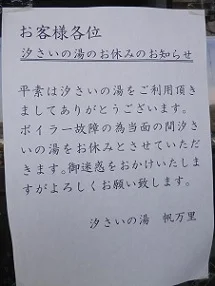 お客様各位
汐さいの湯のお休みのお知らせ
平素は汐さいの湯をご利用頂き
ましてありがとうございます。
ボイラー故障の為当面の間汐さ
いの湯をお休みとさせていただ
きます。御迷惑をおかけいたしま
すがよろしくお願い致します。
汐さいの湯　帆万里